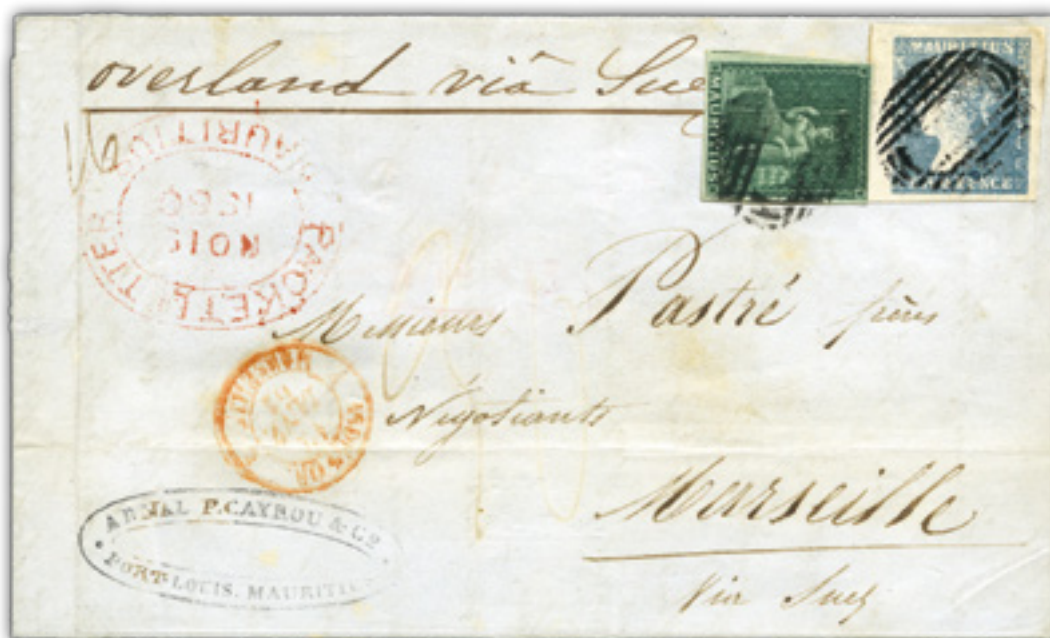 overland viâ Suez
MAURITIUS
MAURITIUS
TWO PENCE
PACKET LETTER MAURITIUS
NO 15
1860
Messieurs Pastré frères
Négotiants
Marseille
Via Suez
ARNAL P.CAYROU & Co
PORT-LOUIS. MAURITIUS